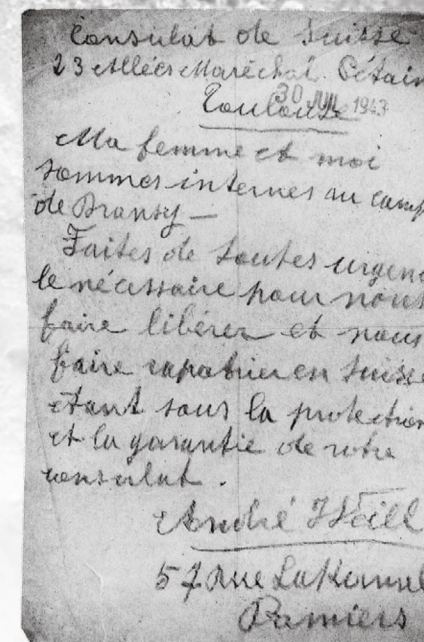 Consulat de Suisse
23 Allées Maréchal Pétain
Toulouse
30 JUIL 1943
Ma femme et moi
sommes internes au camp
de Dransy —
Faites de toutes urgenc
le nécessaire pour nous
faire libérer et nous
faire rapatrier en Suisse
étant sous la protection
et la garantie de votre
consulat.
André Weill
57 Rue
Pamiers